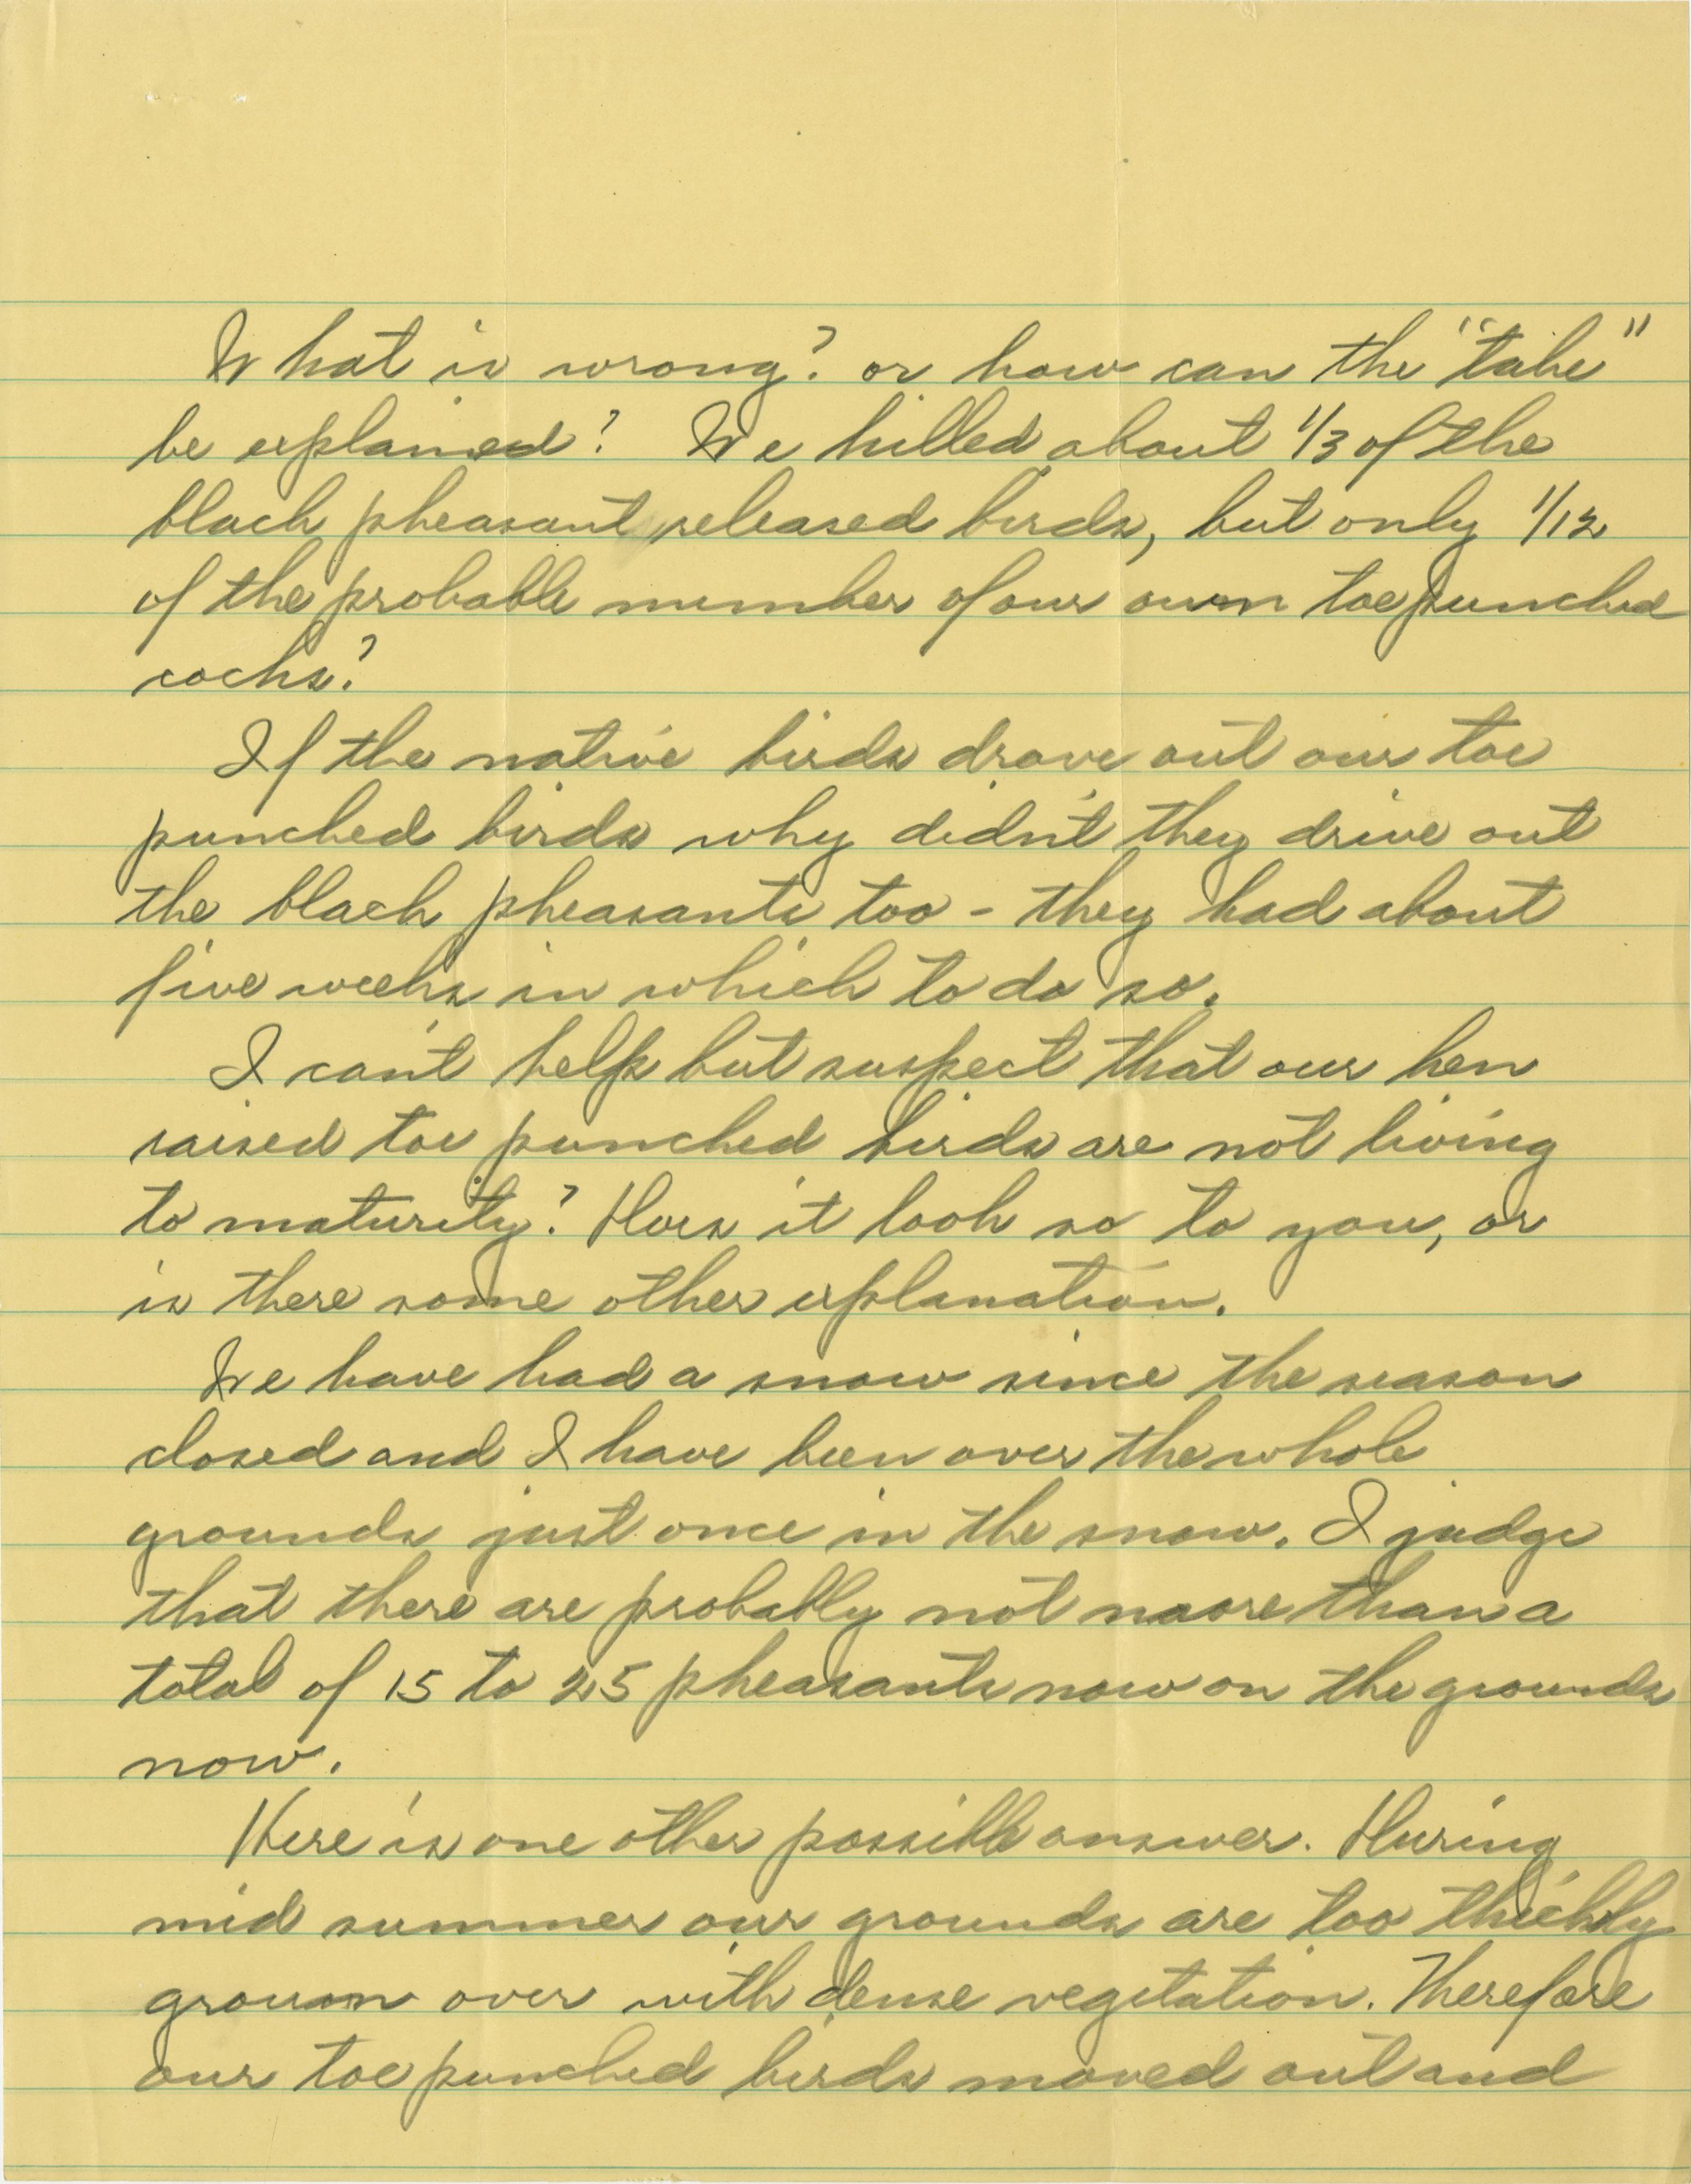 What is wrong? or how can the "take"
be explained? We killed about 1/3 of the
black pheasant released birds, but only 1/12
of the probable number of our own toe punched
cocks?
If the native birds drove out our toe
punched birds why didn't they drive out
the black pheasants too - they had about
five weeks in which to do so.
I can't help but suspect that our hen
raised toe punched birds are not living
to maturity? Does it look so to you, or
is there some other explanation.
We have had a snow since the season
closed and I have been over the whole
grounds just once in the snow. I judge
that there are probably not more than a
total of 15 to 25 pheasants now on the grounds
now.
Here is one other possible answer. During
mid summer our grounds are too thickly
grown over with dense vegetation. Therefore
our toe punched birds moved out and